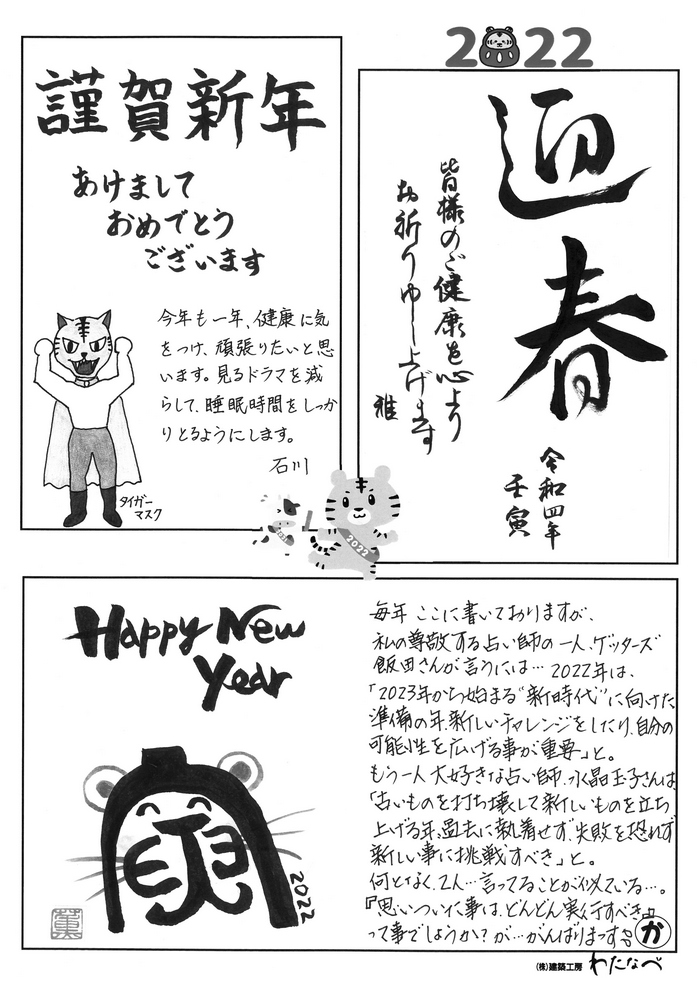 2022
謹賀新年
あけまして
おめでとう
ございます
今年も一年、健康に気
をつけ、頑張りたいと思
います。見るドラマを減
らして、睡眠時間をしっか
りとるようにします。
石川
タイガー
マスク
迎春
皆様のご健康を心より
お祈りゆし上げます
雅
令和四年
壬寅
2022
Happy New
Year
2022
毎年 ここに書いておりますが、
私の尊敬する占い師の一人、ゲッターズ
飯田さんが言うには… 2022年は、
「2023年から始まる“新時代”に向けた
準備の年、新しいチャレンジをしたり、自分の
可能性を広げる事が重要」と。
もう一人 大好きな占い師、水晶玉子さんは
「古いものを打ち壊して新しいものを立ち
上げる年、過去に執着せず、失敗を恐れず
新しい事に挑戦すべき」と。
何となく、2人…言ってることが似ている…。
『思いついた事は、どんどん実行すべき』
って事でしょうか？が…がんばりまっする
か
(株)建築工房 わたなべ